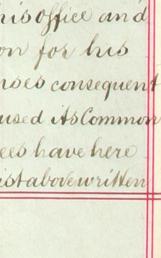 his office and
on for his
nses consequent
used its Common
ees have here
rst above written